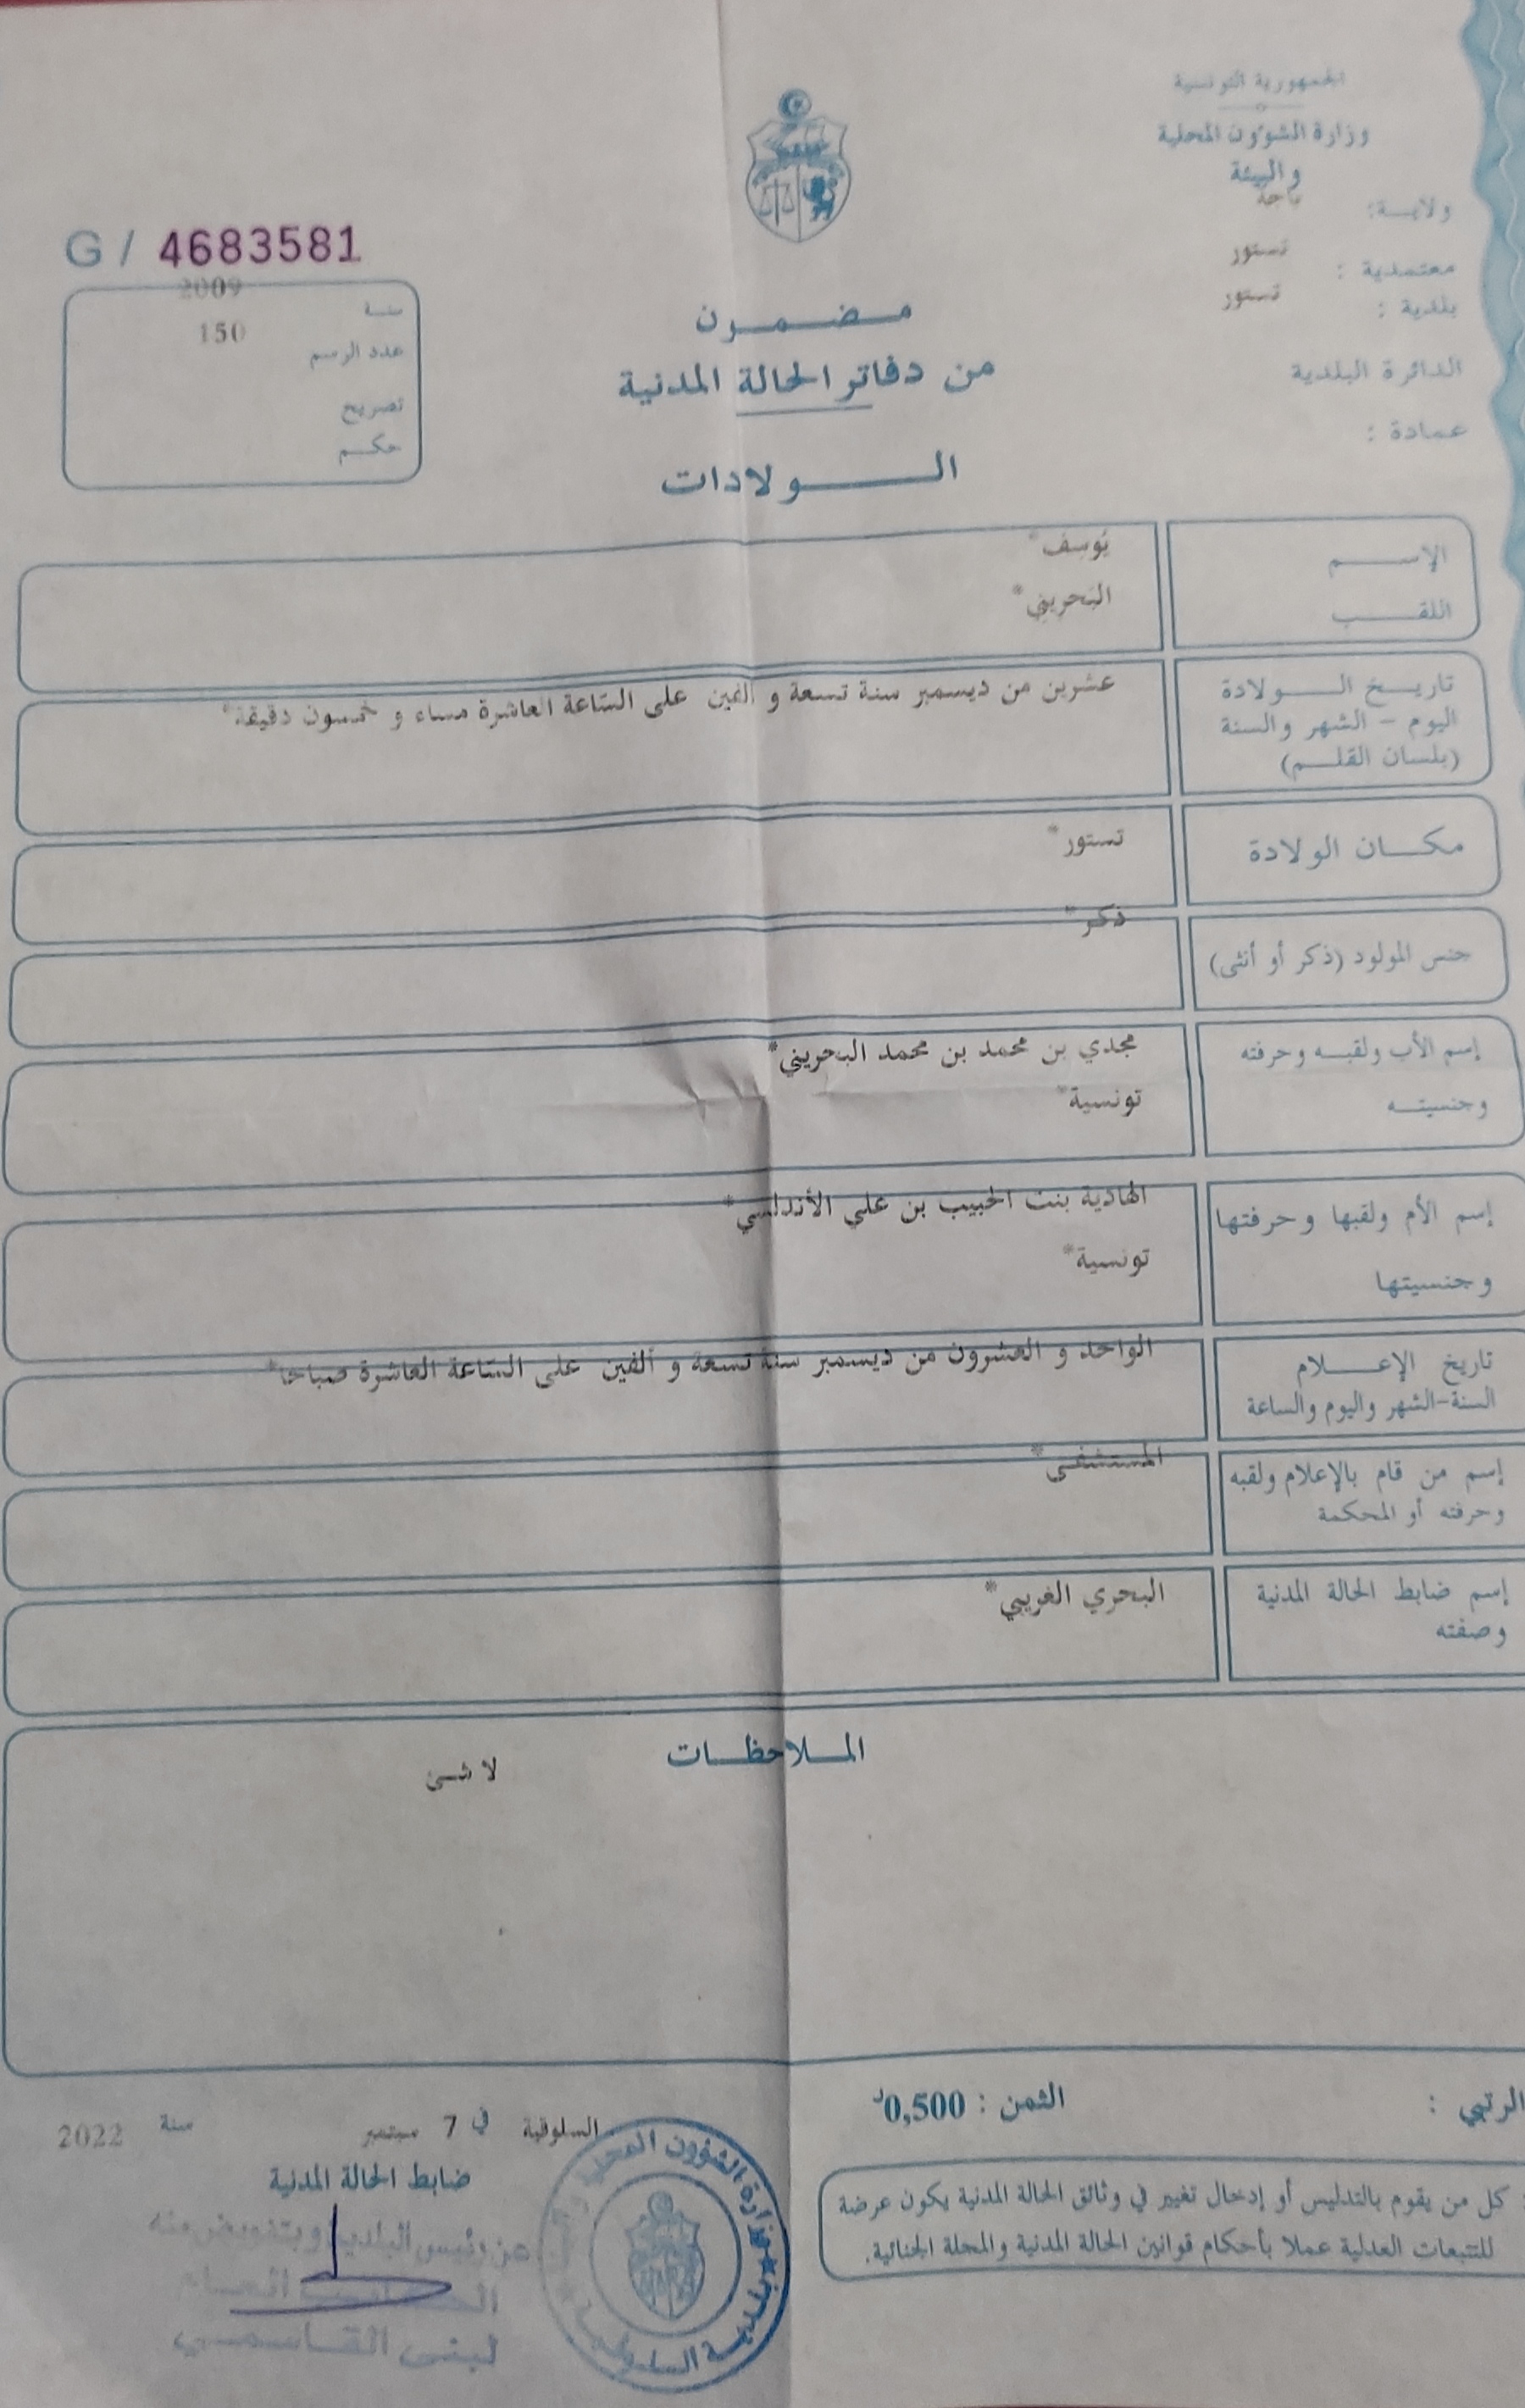 الجمهورية التونسية
وزارة الشؤون المحلية
والبيئة
ولايـــة: باجة
معتمدية : تستور
بلدية : تستور
الدائرة البلدية
عمادة :
G / 4683581
سنة 2009
عدد الرسم 150
تصريح
حكم
مضمون
من دفاتر الحالة المدنية
الولادات
الإسم يُوسِف*
اللقب البَحرِيني*
تاريخ الولادة عشرين من ديسمبر سنة تسعة و ألفين على السّاعة العاشرة مساء و خمسون دقيقة*
اليوم - الشهر والسنة
(بلسان القلم)
مكان الولادة تستور*
جنس المولود (ذكر أو أنثى) ذكر*
إسم الأب ولقبه وحرفته مجدي بن محمد بن محمد البحريني*
وجنسيته تونسية*
إسم الأم ولقبها وحرفتها الهادية بنت الحبيب بن علي الأندلسي*
وجنسيتها تونسية*
تاريخ الإعلام الواحد و العشرون من ديسمبر سنة تسعة و ألفين على السّاعة العاشرة صباحا*
السنة-الشهر واليوم والساعة
إسم من قام بالإعلام ولقبه المستشفى*
وحرفته أو المحكمة
إسم ضابط الحالة المدنية البحري الغريبي*
وصفته
الملاحظات
لا شئ
الرتبي :
الثمن : 0,500د
السلوقية في 7 سبتمبر سنة 2022
ضابط الحالة المدنية
عن رئيس البلدية وبتفويض منه
العام
لبنى القاسمي
وزارة الشؤون المحلية
بلدية السلوقية
كل من يقوم بالتدليس أو إدخال تغيير في وثائق الحالة المدنية يكون عرضة
للتتبعات العدلية عملا بأحكام قوانين الحالة المدنية والمجلة الجنائية.